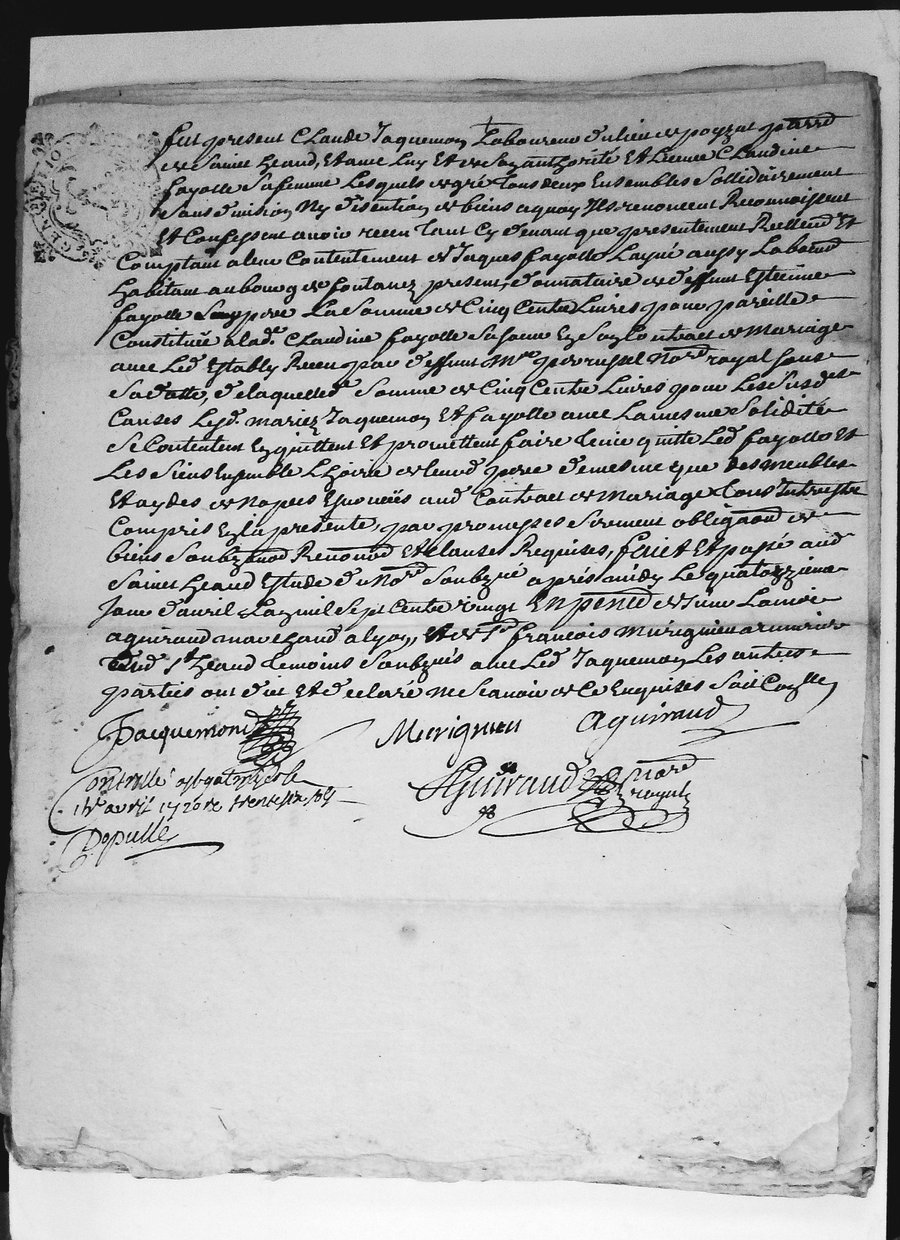 fut present Claude Jaquemon Laboureur du lieu de poyzat parre
de Saint heand, Et avec Luy Et de Son authorité Et Licence Claudine
fayolle Sa femme Lesquels de gré tous deux Ensembles Sollidairement
Sans division Ny disention de biens a quoy Ils renoncent Reconnoissent
Et Confessent avoir receu tant Cy devant que presentement Reellemt Et
Comptant a leur Contentement de Jaques fayolle Layné aussy Labourd
habitant au bourg de fontanez present, donnataire de deffunt Estienne
fayolle Son pere La Somme de Cinq Cents Livres pour pareille
Constituée a lad. Claudine fayolle Sa soeur En Son Contract de Mariage
avec Led Establi Receu par deffunt Me Nore royal Sous
Sa datte, de laquelled Somme de Cinq Cents Livres pour Les Susd
Causes Lesd. mariez Jaquemon Et fayolle avec La mesme Solidité
Se Contentent En quittent Et promettent faire tenir quitte Led fayolle Et
Les Siens Ensemble L'hoirie de leurd pere de mesme que des meubles
Et aydes de Nopces Enoncés aud Contract de Mariage
Compris En la presente, par promesses Serement obligaon de
biens Renond Et clauses Requises, fait Et passé aud
Saint heand Estude du Nore Soubzné apres midy Le quatorzieme
Jour d'avril mil Sept Cents vingt En pnce de
aguiraud marchand a lyon, Et de Sr francois Murignieu armurier
dud St heand temoins Soubznés avec Led Jaquemon Les autres
parties ont dit Et declaré ne Scavoir de Ce Enquises
Jacquemond Murignieu Aguiraud
Controllé
avril 1720 re trente six sols
Depulle
Guiraud Nore
royal